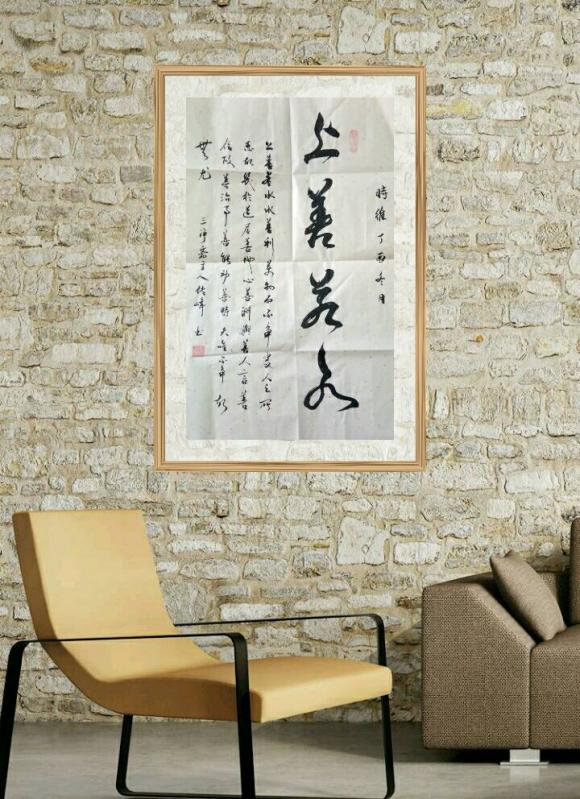 時維丁酉冬月
上善若水
上善若水水善利萬物而不爭處人之所
惡故幾於道居善地心善淵與善人言善
信政善治事善能動善時夫唯不爭故
無尤
齋主人 峰書